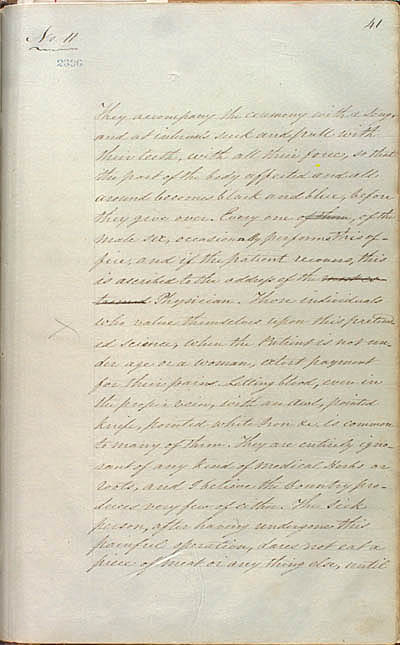 No. 11
41
2336
They accompany the ceremony with a Song,
and at intervals suck and pull with
their teeth, with all their force, so that
the part of the body affected and all
around becomes black and blue, before
they give over. Every one of them, of the
male sex, occasionally performs this of-
fice, and if the patient recovers, this
is ascribed to the address of the
Physician. Those individuals
who value themselves upon this pretend-
ed science, when the Patient is not un-
der age or a woman, extort payment
for their pains. Letting blood, even in
the proper vein, with an awl, pointed
knife, pointed white Iron &c. is common
to many of them. They are entirely igno-
rant of any kind of Medical Herbs or
roots, and I believe the Country pro-
duces very few of either. The Sick
person, after having undergone this
painful operation, dares not eat a
piece of meat or any thing else, until